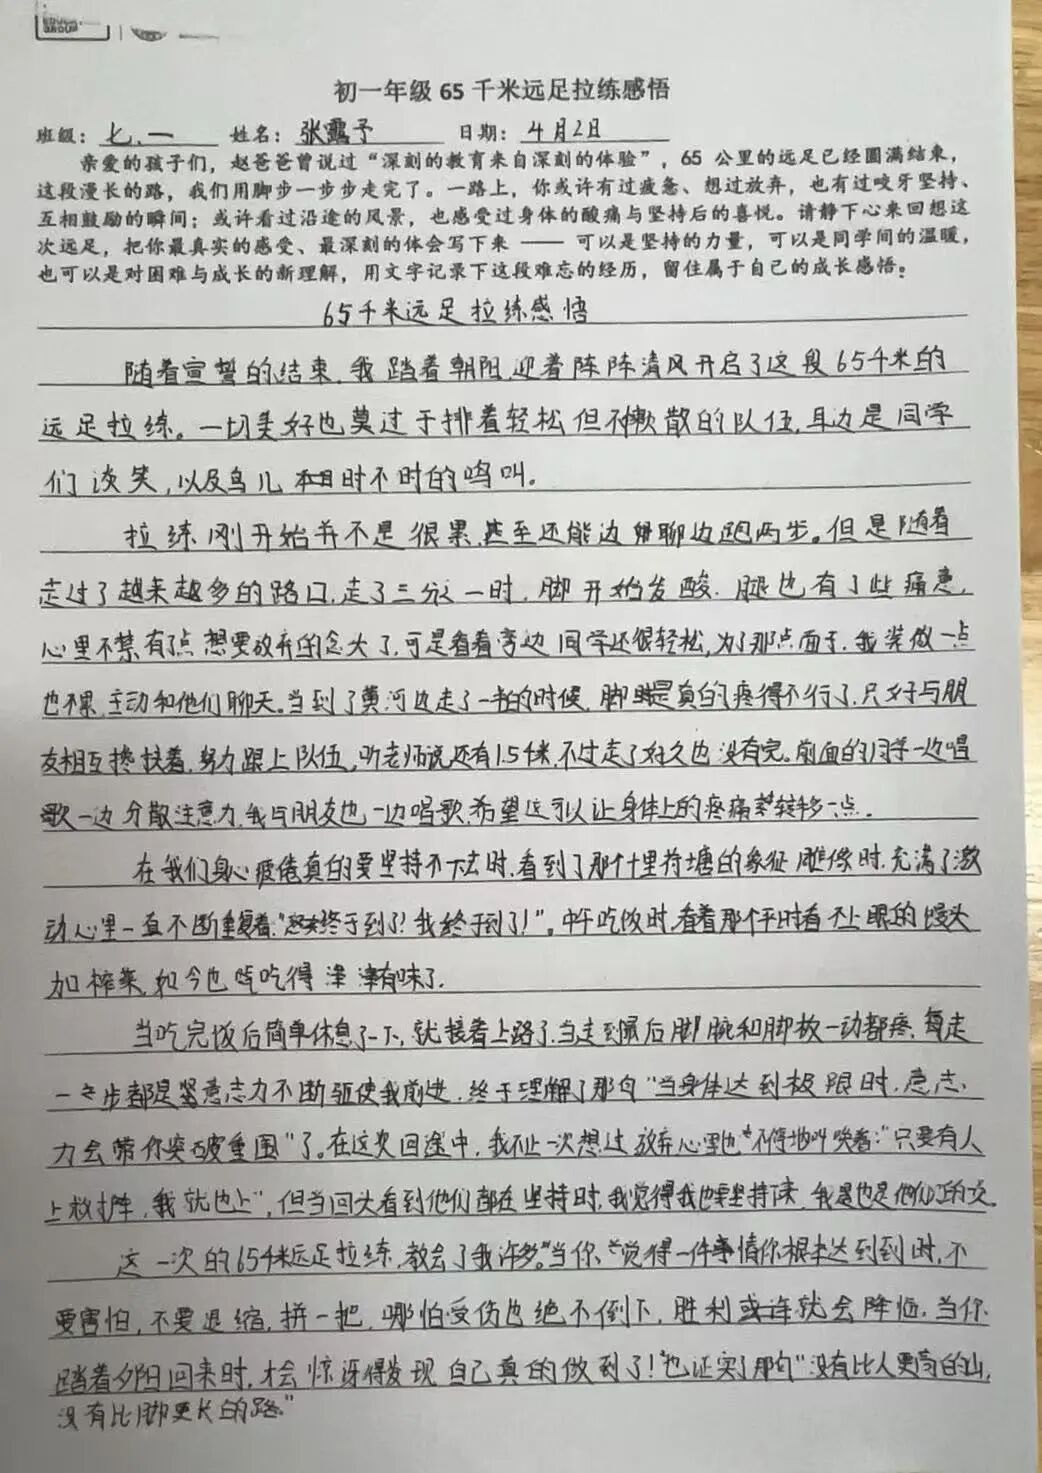 初一年级 65 千米远足拉练感悟
班级：七.一 姓名：张露予 日期：4月2日
亲爱的孩子们，赵爸爸曾说过“深刻的教育来自深刻的体验”，65 公里的远足已经圆满结束，
这段漫长的路，我们用脚步一步步走完了。一路上，你或许有过疲惫、想过放弃，也有过咬牙坚持、
互相鼓励的瞬间；或许看过沿途的风景，也感受过身体的酸痛与坚持后的喜悦。请静下心来回想这
次远足，把你最真实的感受、最深刻的体会写下来 —— 可以是坚持的力量，可以是同学间的温暖，
也可以是对困难与成长的新理解，用文字记录下这段难忘的经历，留住属于自己的成长感悟：
65千米远足拉练感悟
随着宣誓的结束，我踏着朝阳，迎着阵阵清风开启了这段65千米的
远足拉练。一切美好也莫过于排着轻松但不懒散的队伍，耳边是同学
们谈笑，以及鸟儿时不时的鸣叫。
拉练刚开始并不是很累，甚至还能边聊边跑两步。但是随着
走过了越来越多的路口，走了三分之一时，脚开始发酸，腿也有了些痛意，
心里不禁有了点想要放弃的念头了，可是看看旁边同学还很轻松，为了那点面子，我装做一点
也不累，主动和他们聊天。当到了黄河边走了一半的时候，脚是真的疼得不行了，只好与朋
友相互搀扶着，努力跟上队伍，听老师说还有1.5千米，不过走了好久也没有完。前面的同学一边唱
歌一边分散注意力，我与朋友也一边唱歌，希望这可以让身体上的疼痛转移一点。
在我们身心疲倦真的要坚持不下去时，看到了那个十里荷塘的象征雕像时，充满了激
动，心里一直不断重复着：“终于到了！我终于到了！”。中午吃饭时，看着那个平时看不上眼的馒头
加榨菜，如今也吃得津津有味了。
当吃完饭后简单休息了一下，就接着上路了，当走到最后脚腕和脚放一动都疼，每走
一步都是意志力不断驱使我前进，终于理解了那句“当身体达到极限时，意志
力会带你突破重围”了。在这次回途中，我不止一次想过放弃，心里也不停地叫唤着：“只要有人
上救护车，我就也上”，但当回头看到他们都在坚持时，我觉得我也要坚持下来，我是也是他们的
这一次的65千米远足拉练，教会了我许多。“当你觉得一件事情你根本达到到时，不
要害怕，不要退缩，拼一把，哪怕受伤也绝不倒下，胜利就会降临，当你
踏着夕阳回来时，才会惊讶得发现自己真的做到了！”也证实了那句“没有比人更高的山，
没有比脚更长的路。”